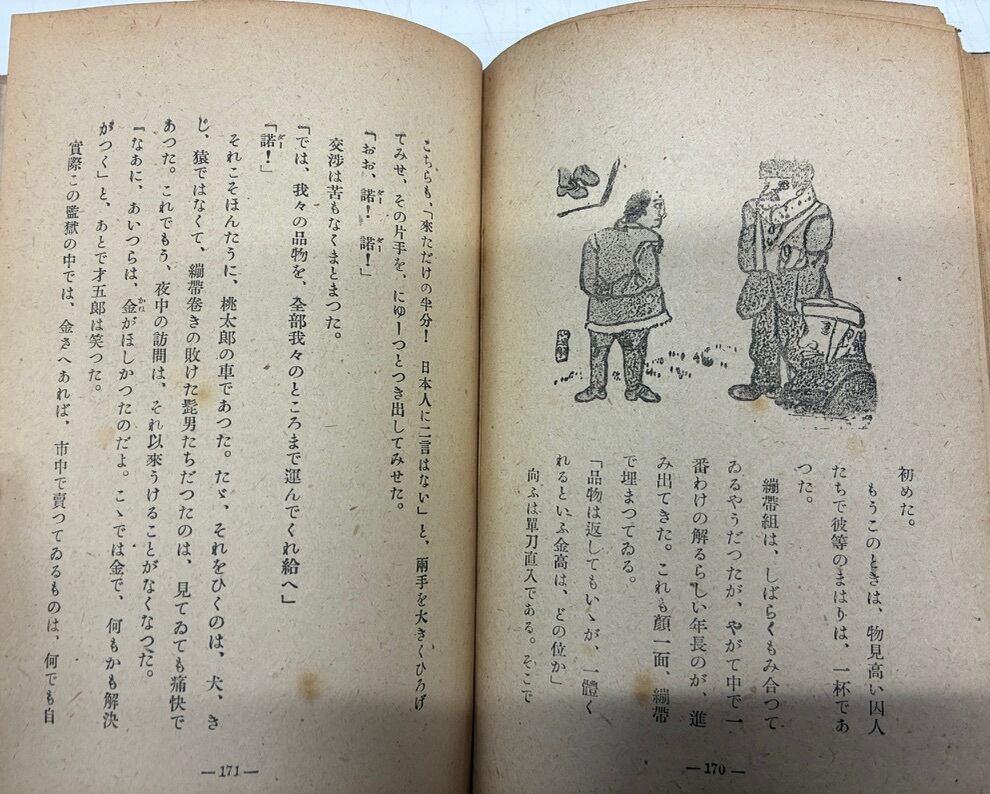 初めた。
もうこのときは、物見高い囚人
たちで彼等のまはりは、一杯であ
つた。
繃帶組は、しばらくもみ合つて
ゐるやうだつたが、やがて中で一
番わけの解るらしい年長のが、進
み出てきた。これも顏一面、繃帶
で埋まつてゐる。
「品物は返してもいゝが、一體く
れるといふ金高は、どの位か」
向ふは單刀直入である。そこで
—170—
こちらも、「來ただけの半分！　日本人に二言はない」と、兩手を大きくひろげ
てみせ、その片手を、にゆーつとつき出してみせた。
「おお、諾！　諾！」
交渉は苦もなくまとまつた。
「では、我々の品物を、全部我々のところまで運んでくれ給へ」
「諾！」
それこそほんたうに、桃太郎の車であつた。たゞ、それをひくのは、犬、き
じ、猿ではなくて、繃帶卷きの敗けた髭男たちだつたのは、見てゐても痛快で
あつた。これでもう、夜中の訪問は、それ以來うけることがなくなつた。
「なあに、あいつらは、金がほしかつたのだよ。こゝでは金で、何もかも解決
がつく」と、あとで才五郎は笑つた。
實際この監獄の中では、金さへあれば、市中で賣つてゐるものは、何でも自
—171—